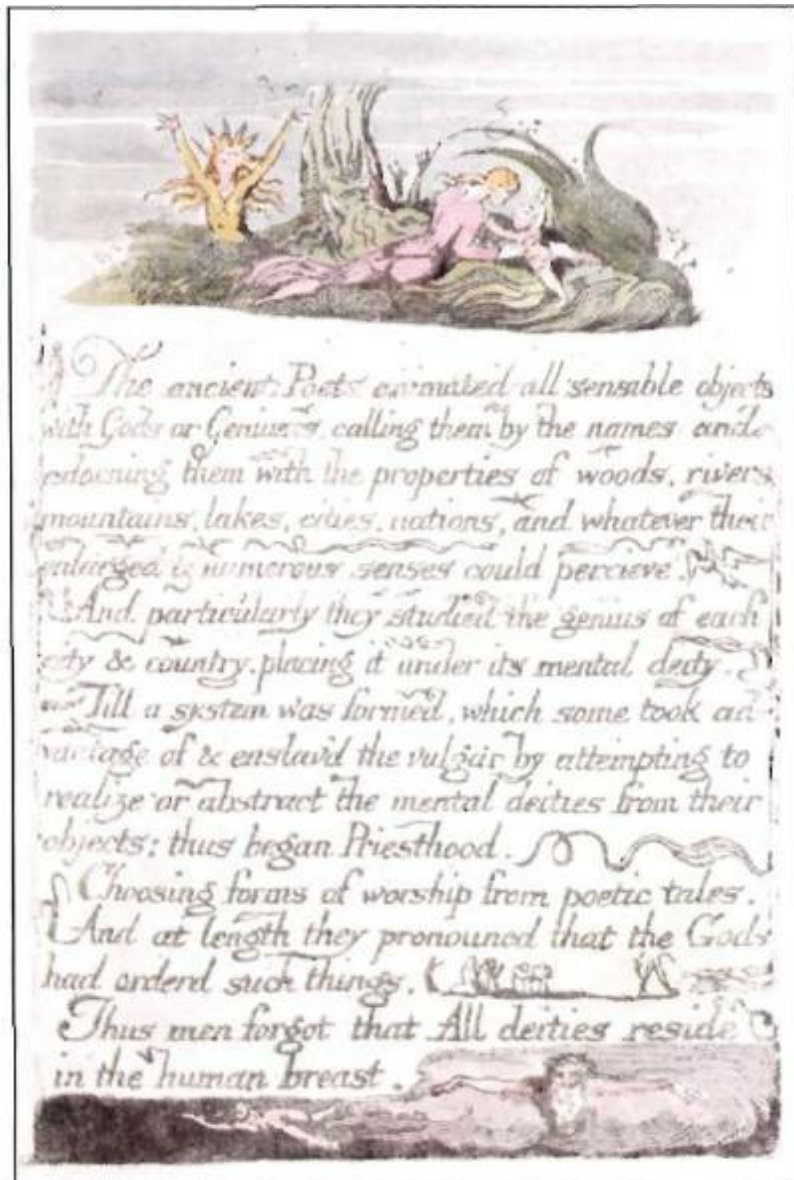 The ancient Poets animated all sensible objects
with Gods or Geniuses, calling them by the names and
adorning them with the properties of woods, rivers,
mountains, lakes, cities, nations, and whatever their
enlarged & numerous senses could percieve.
And particularly they studied the genius of each
city & country. placing it under its mental deity.
Till a system was formed, which some took ad-
vantage of & enslav'd the vulgar by attempting to
realize or abstract the mental deities from their
objects: thus began Priesthood.
Choosing forms of worship from poetic tales.
And at length they pronounced that the Gods
had orderd such things.
Thus men forgot that All deities reside
in the human breast.